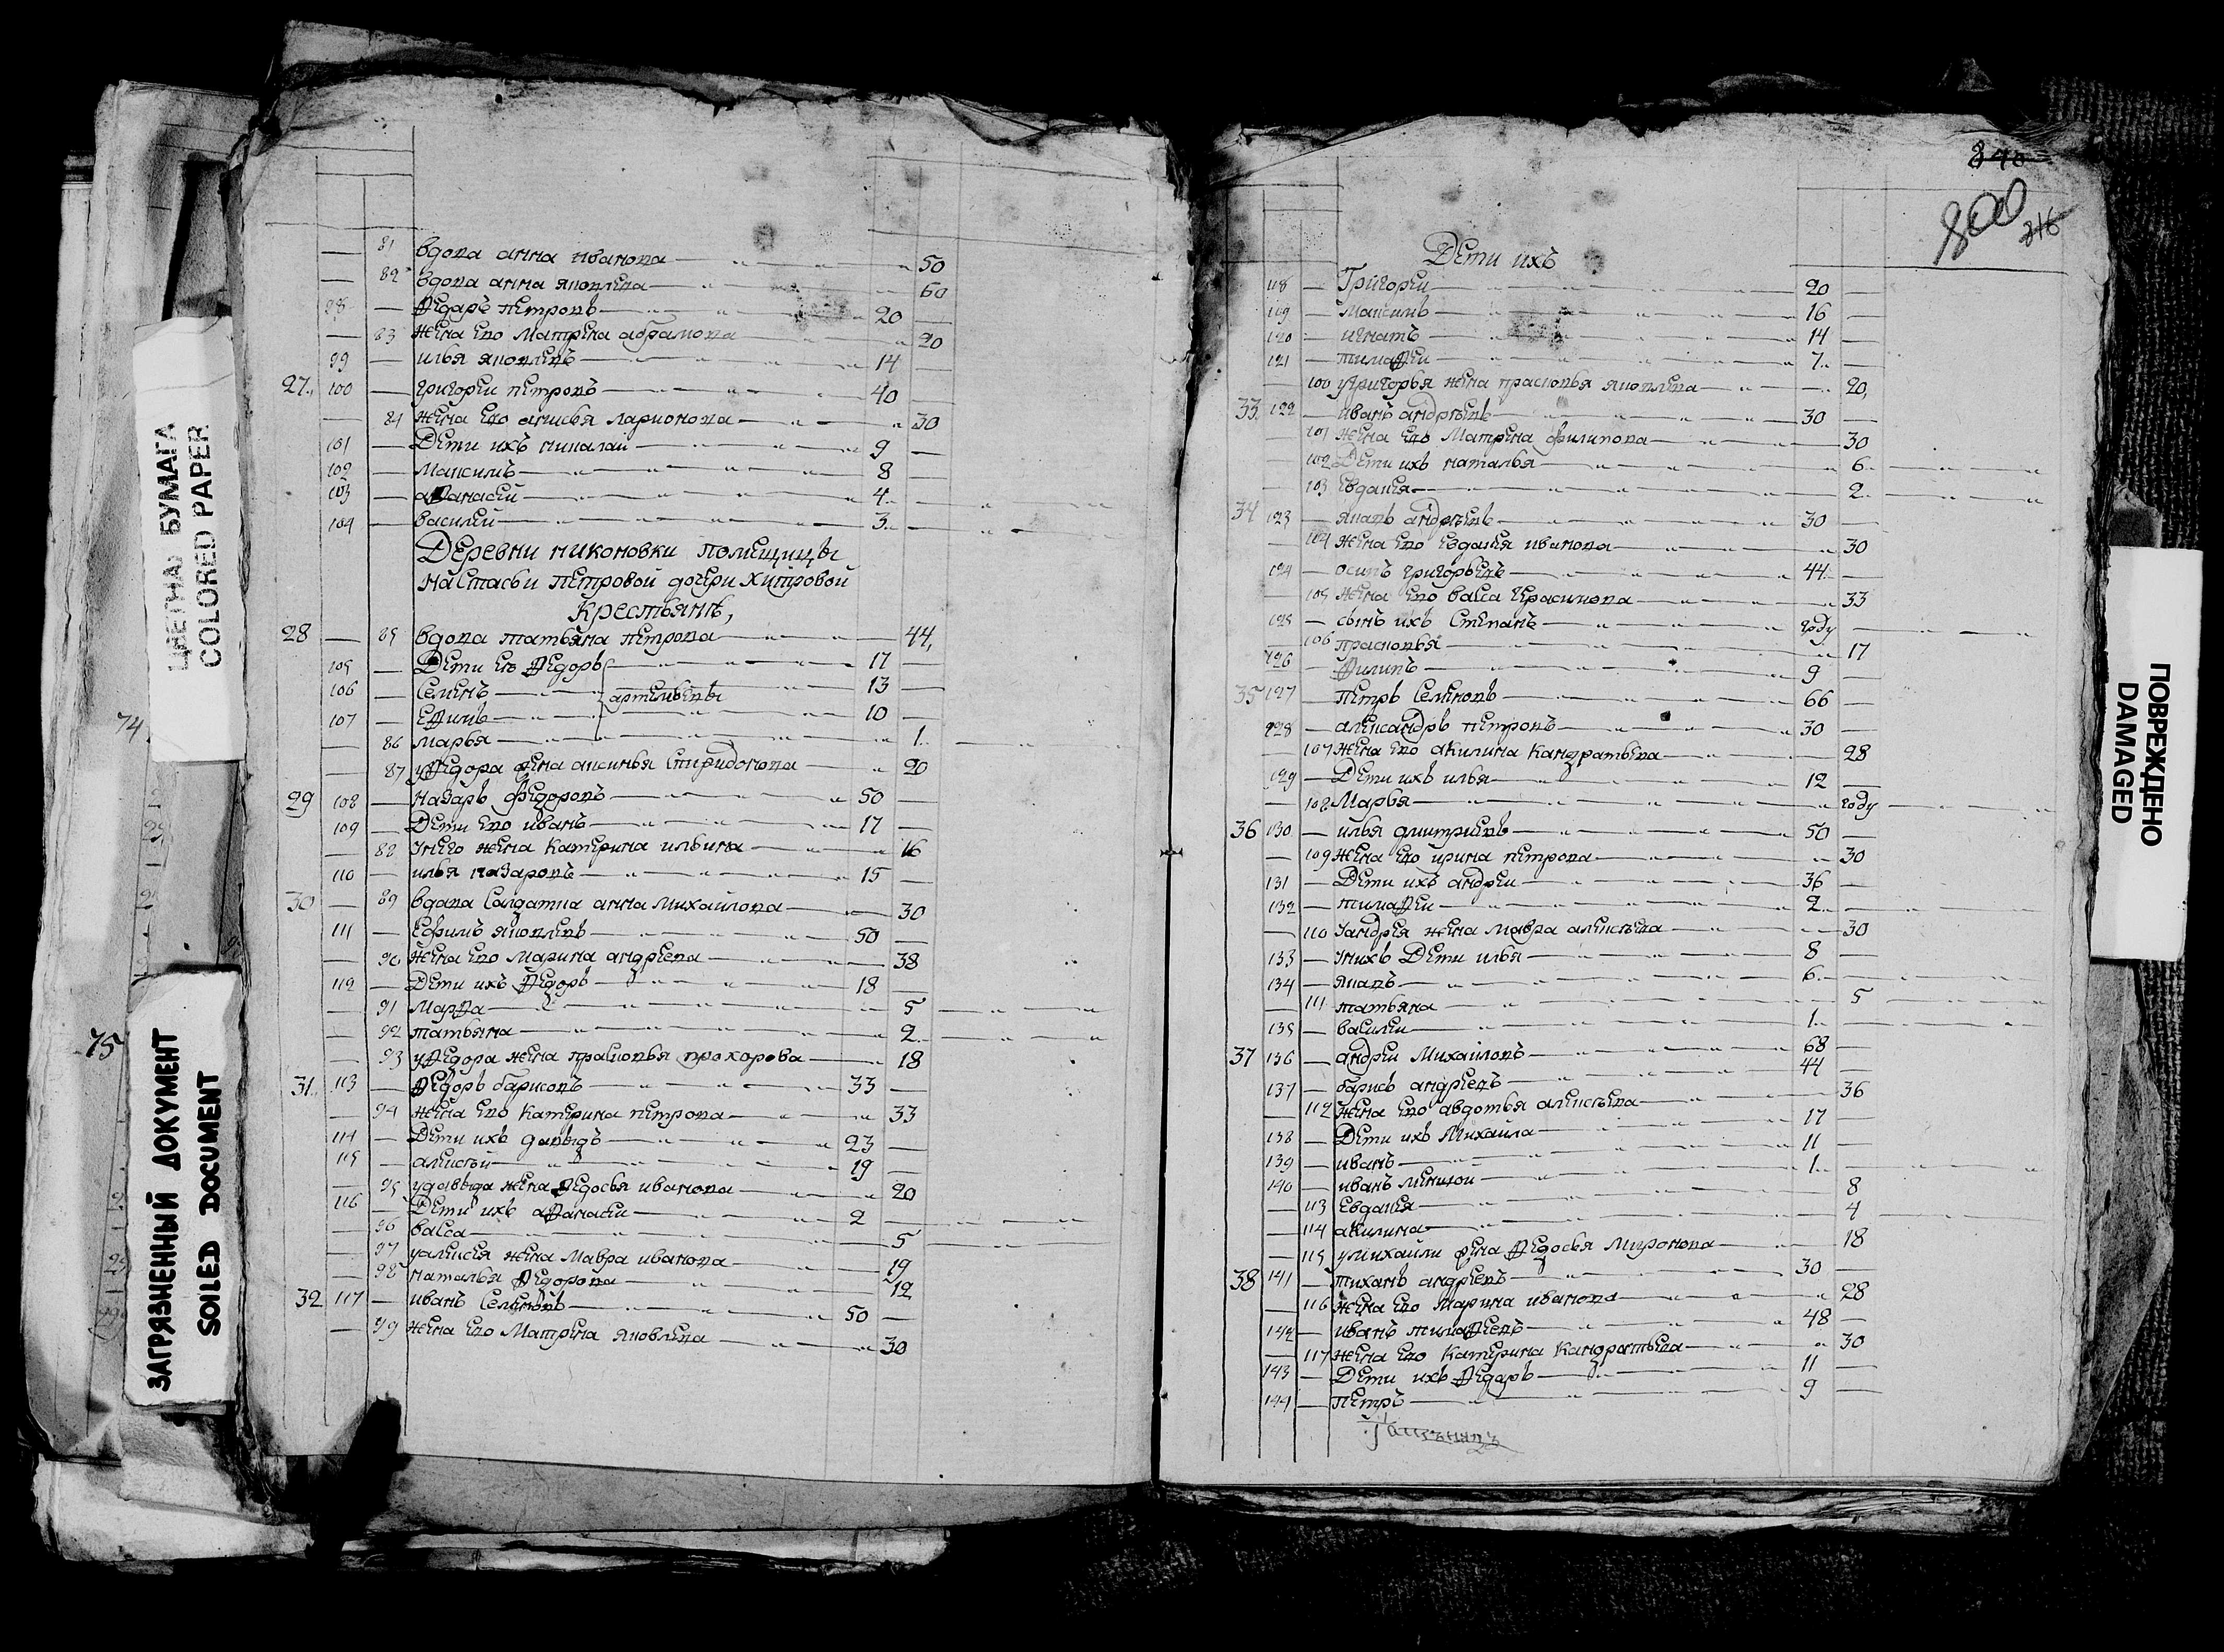 81 вдова анна иванова 50
82 вдова анна яковлева 60
98 Ѳедаръ петровъ 20
83 жена ево Матрена абрамова 20
99 илья яковлевъ 14
27 100 григореи петровъ 40
84 жена ево анисья ларионова 30
101 Дети ихъ николаи 9
102 Максимъ 8
103 аѲанасеи 4
104 василеи 3
Деревни никоновки помещицы
настасьи петровой дочери хитровой
крестьянъ,
28 85 вдова татьяна петрова 44
105 Дети еѣ Ѳедоръ 17
106 Семенъ артемьевы 13
107 ЕѲимъ 10
86 марья 1
87 уѲедора жена аксинья Спиридонова 20
29 108 Назаръ федоровъ 50
109 Дети ево иванъ 17
88 Унего жена катерина ильина 16
110 илья назаровъ 15
30 89 вдава Салдатка анна михаилова 30
111 ефимъ яковлевъ 50
90 жена ево марина андреева 38
112 Дети ихъ Ѳедоръ 18
91 МарѲа 5
92 татьяна 2
93 уѲедора жена прасковья прохорова 18
31 113 Ѳедоръ барисовъ 33
94 жена ево катерина петрова 33
114 Дети ихъ давыдъ 23
115 алексѣи 19
95 удавыда жена Ѳедосья иванова 20
116 Дети ихъ аѲанасеи 2
96 васса 5
97 уалексея жена мавра иванова 19
98 наталья Ѳедорова 12
32 117 иванъ Семеновъ 50
99 жена ево Матрена яковлева 30
ЦВЕТНА БУМАГА
COLORED PAPER
74
75
ЗАГРЯЗНЕННЫЙ ДОКУМЕНТ
SOILED DOCUMENT
840
800
316
Дети ихъ
118 Григореи 20
119 Максимъ 16
120 игнатъ 14
121 тимаѲеи 7
100 угригорья жена прасковья яковлева 20
33 122 иванъ андрѣевъ 30
101 жена ево Матрена филипова 30
102 Дети ихъ наталья 6
103 евдакея 2
34 123 яковъ андрѣевъ 30
104 жена ево евдакея иванова 30
124 осипъ григорьевъ 44
105 жена ево васса герасимова 33
125 сынъ ихъ Степанъ году
106 прасковья 17
126 Ѳилипъ 9
35 127 петръ Семеновъ 66
128 александръ петровъ 30
107 жена ево акилина кандратьева 28
129 Дети ихъ илья 12
108 Марья году
36 130 илья дмитриевъ 50
109 жена ево ирина петрова 30
131 Дети ихъ андреи 36
132 тимаѲеи 2
110 Уандрея жена мавра алексѣева 30
133 Унихъ Дети илья 8
134 яковъ 6
111 татьяна 5
135 василеи 1
37 136 андреи Михаиловъ 68
137 барисъ андреевъ 44
112 жена ево авдотья алексѣева 36
138 Дети ихъ Михаила 17
139 иванъ 11
140 иванъ меншои 1
113 евдакея 8
114 акилина 4
115 умихаилы жена Ѳедосья Миронова 18
38 141 тиханъ андреевъ 30
116 жена ево марина иванова 28
142 иванъ тимаѲеевъ 48
117 жена ево катерина кандратьева 30
143 Дети ихъ Ѳедаръ 11
144 петръ 9
ПОВРЕЖДЕНО
DAMAGED